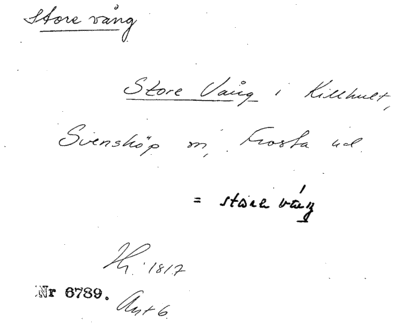 Store vång
Store Vång i Killhult,
Svensköp sn, Frosta hd.
= stora vång
1817
Nr 6789.